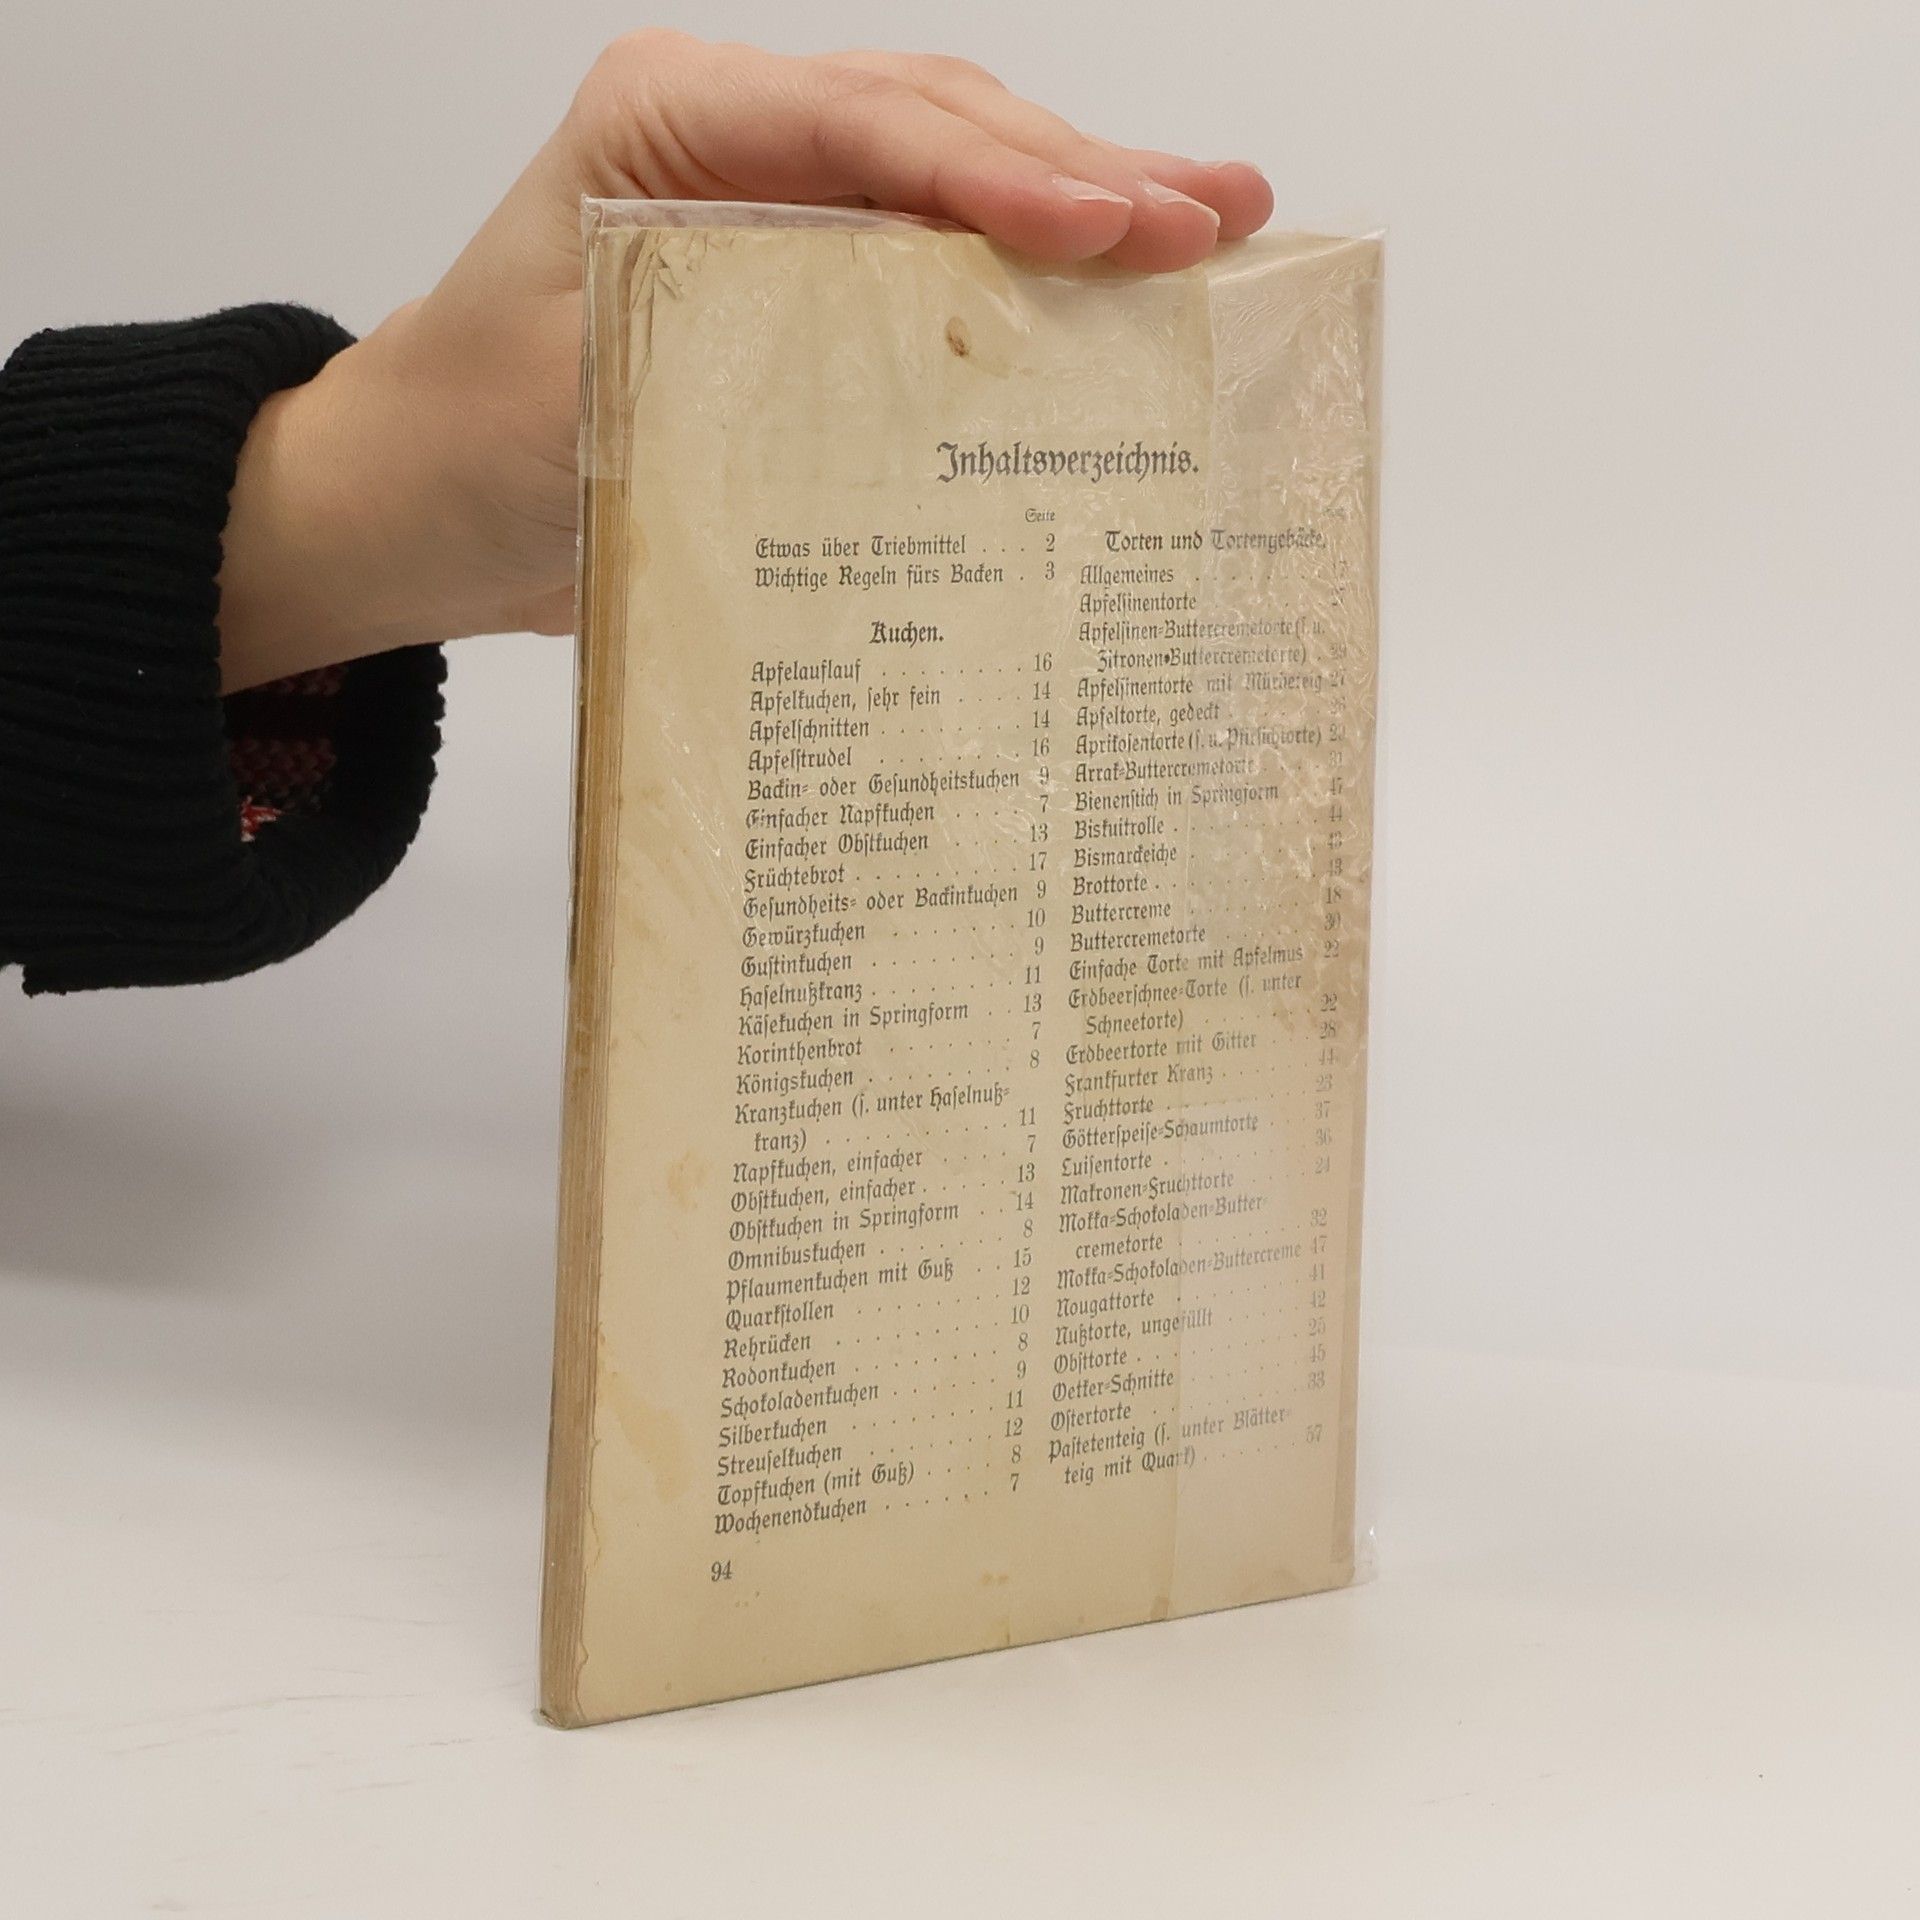 Inhaltsverzeichnis.
Seite
Etwas über Triebmittel . . . 2
Wichtige Regeln fürs Backen . 3
Kuchen.
Apfelauflauf . . . . . . . . 16
Apfelkuchen, sehr fein . . . . 14
Apfelschnitten . . . . . . . . 14
Apfelstrudel . . . . . . . . 16
Backin- oder Gesundheitskuchen 9
Einfacher Napfkuchen . . . . 7
Einfacher Obstkuchen . . . . 13
Früchtebrot . . . . . . . . . 17
Gesundheits- oder Backinkuchen 9
Gewürzkuchen . . . . . . . 10
Gustinkuchen . . . . . . . . 9
Haselnußkranz . . . . . . . . 11
Käsekuchen in Springform . . 13
Korinthenbrot . . . . . . . 7
Königskuchen . . . . . . . . 8
Kranzkuchen (s. unter Haselnuß-
kranz) . . . . . . . . . . 11
Napfkuchen, einfacher . . . . 7
Obstkuchen, einfacher . . . . . 13
Obstkuchen in Springform . . 14
Omnibuskuchen . . . . . . . 8
Pflaumenkuchen mit Guß . . 15
Quarkstollen . . . . . . . . 12
Rehrücken . . . . . . . . . 10
Rodonkuchen . . . . . . . . 8
Schokoladenkuchen . . . . . . 9
Silberkuchen . . . . . . . . 11
Streuselkuchen . . . . . . . 12
Topfkuchen (mit Guß) . . . . 8
Wochenendkuchen . . . . . . 7
94
Torten und Tortengebäcke.
Allgemeines . . . . . . . .
Apfelsinentorte . . . . . . .
Apfelsinen-Buttercremetorte (s. u.
Zitronen-Buttercremetorte) . 29
Apfelsinentorte mit Mürbeteig 27
Apfeltorte, gedeckt . . . . . 26
Aprikosentorte (s. u. Pfirsichtorte)
Arrak-Buttercremetorte . . . . 31
Bienenstich in Springform . . 47
Biskuitrolle . . . . . . . . . 44
Bismarckeiche . . . . . . . . 43
Brottorte . . . . . . . . . . 43
Buttercreme . . . . . . . . 18
Buttercremetorte . . . . . . 30
Einfache Torte mit Apfelmus 22
Erdbeerschnee-Torte (s. unter
Schneetorte) . . . . . . . 22
Erdbeertorte mit Gitter . . . 28
Frankfurter Kranz . . . . . . 44
Fruchttorte . . . . . . . . . 23
Götterspeise-Schaumtorte . . . 37
Luisentorte . . . . . . . . . 36
Makronen-Fruchttorte . . . . 24
Mokka-Schokoladen-Butter-
cremetorte . . . . . . . . 32
Mokka-Schokoladen-Buttercreme 47
Nougattorte . . . . . . . . 41
Nußtorte, ungefüllt . . . . . 42
Obsttorte . . . . . . . . . . 25
Oetker-Schnitte . . . . . . . 45
Ostertorte . . . . . . . . . 33
Pastetenteig (s. unter Blätter-
teig mit Quark) . . . . . . 57